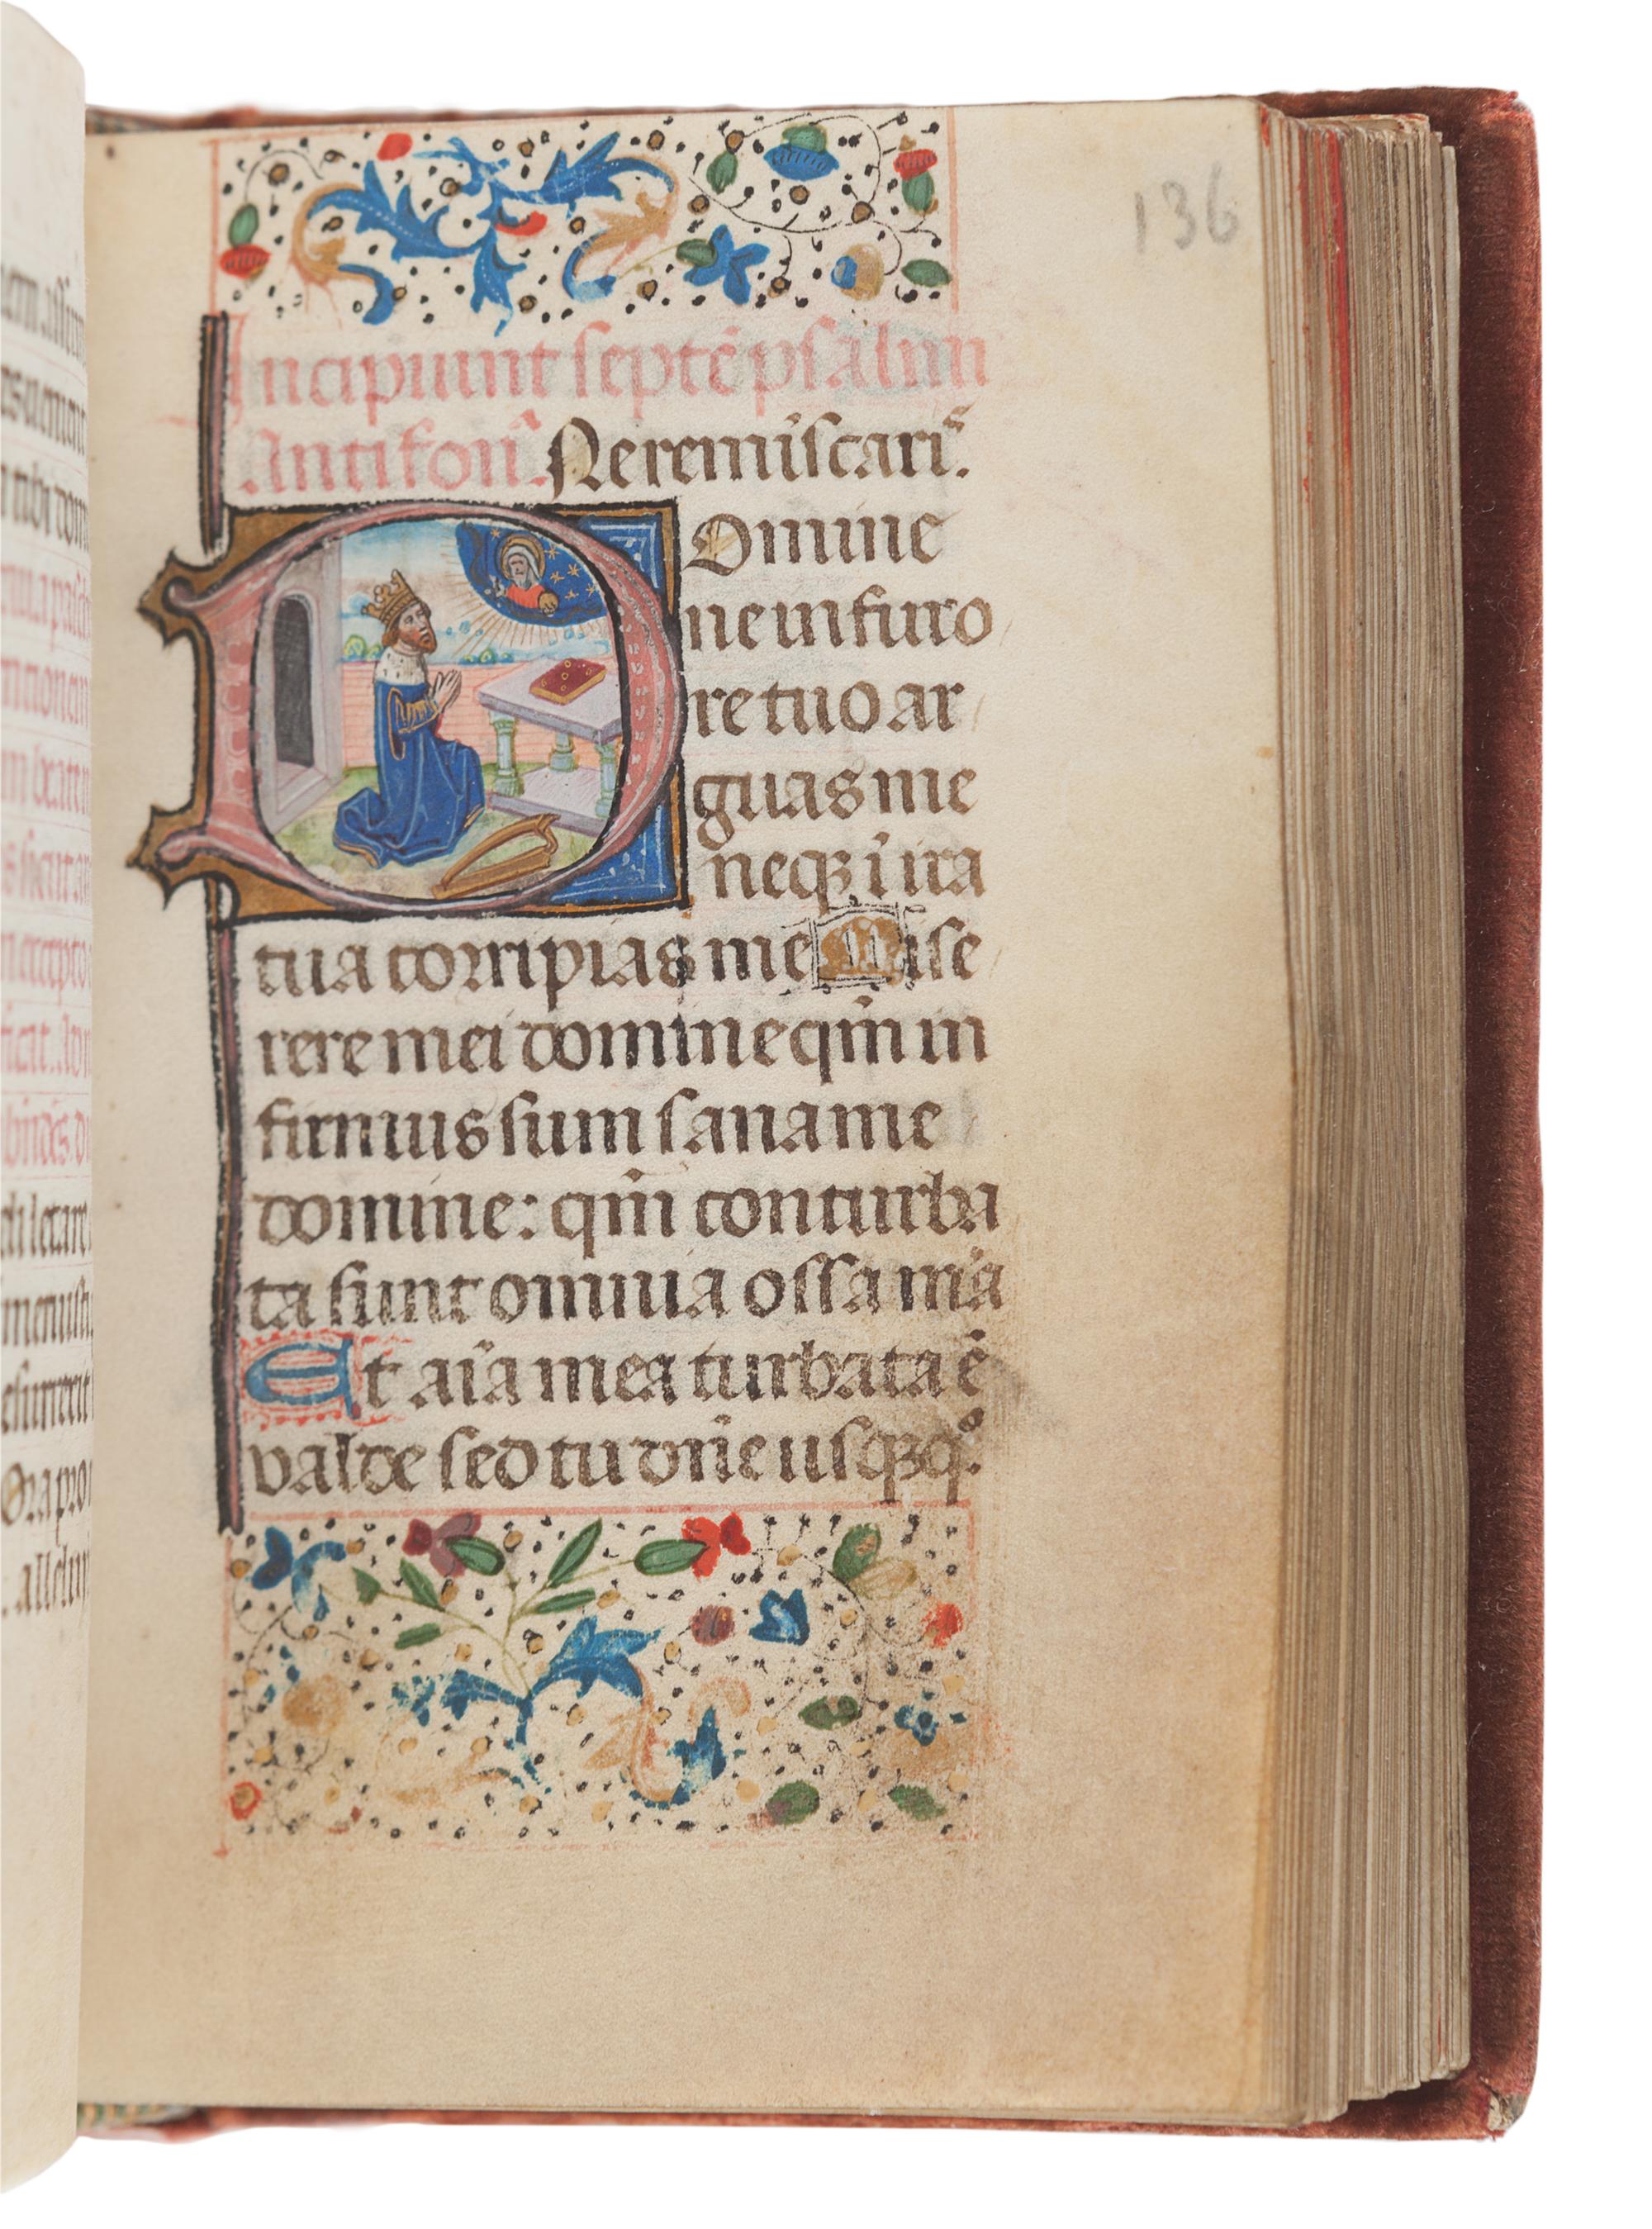 136
Incipiunt septē psalmi
Antifon̄. Ne reminiscar̄.
Domine
ne in furo
re tuo ar
guas me
neqꝫ ī ira
tua corripias me Mise
rere mei domine qm̄ in
firmus sum sana me
domine: qm̄ conturba
ta sunt omnia ossa m̄a
Et aīa mea turbata ē
valde sed tu dn̄e usqꝫqͦ.